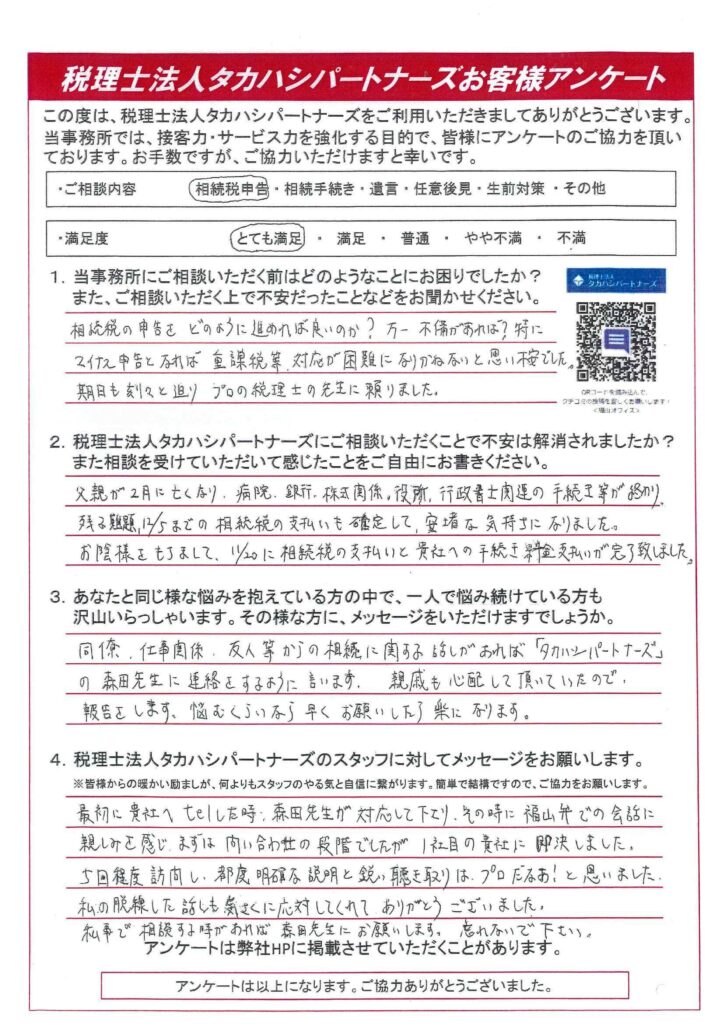 税理士法人タカハシパートナーズお客様アンケート
この度は、税理士法人タカハシパートナーズをご利用いただきましてありがとうございます。
当事務所では、接客力・サービス力を強化する目的で、皆様にアンケートのご協力を頂い
ております。お手数ですが、ご協力いただけますと幸いです。
・ご相談内容 相続税申告・相続手続き・遺言・任意後見・生前対策・その他
・満足度 とても満足 ・ 満足 ・ 普通 ・ やや不満 ・ 不満
1. 当事務所にご相談いただく前はどのようなことにお困りでしたか？
また、ご相談いただく上で不安だったことなどをお聞かせください。
税理士法人
タカハシパートナーズ
相続税の申告をどのように進めれば良いのか？万一不備があれば？特に
マイナス申告となれば重課税等、対応が困難になりかねないと思い不安でした。
期日も刻々と迫りプロの税理士の先生に頼りました。
QRコードを読み込んで、
クチコミの投稿を宜しくお願いします！
<福山オフィス>
2. 税理士法人タカハシパートナーズにご相談いただくことで不安は解消されましたか？
また相談を受けていただいて感じたことをご自由にお書きください。
父親が2月に亡くなり、病院、銀行、株式関係、役所、行政書士関連の手続き等が終わり、
残る難題、12/5までの相続税の支払いも確定して、安堵な気持ちになりました。
お陰様をもちまして、11/20に相続税の支払いと貴社への手続き料金支払いが完了致しました。
3. あなたと同じ様な悩みを抱えている方の中で、一人で悩み続けている方も
沢山いらっしゃいます。その様な方に、メッセージをいただけますでしょうか。
同僚、仕事関係、友人等からの相続に関する話しがあれば「タカハシパートナーズ」
の森田先生に連絡をするように言います。親戚も心配して頂いていたので、
報告をします。悩むくらいなら早くお願いしたら楽になります。
4. 税理士法人タカハシパートナーズのスタッフに対してメッセージをお願いします。
※皆様からの暖かい励ましが、何よりもスタッフのやる気と自信に繋がります。簡単で結構ですので、ご協力をお願いします。
最初に貴社へtelした時、森田先生が対応して下さり、その時に福山弁での会話に
親しみを感じ、まずは問い合わせの段階でしたが1社目の貴社に即決しました。
5回程度訪問し、都度明確な説明と鋭い聴き取りは、プロだなあ！と思いました。
私の脱線した話しも気さくに応対してくれてありがとうございました。
私事で相談する時があれば森田先生にお願いします。忘れないで下さい。
アンケートは弊社HPに掲載させていただくことがあります。
アンケートは以上になります。ご協力ありがとうございました。